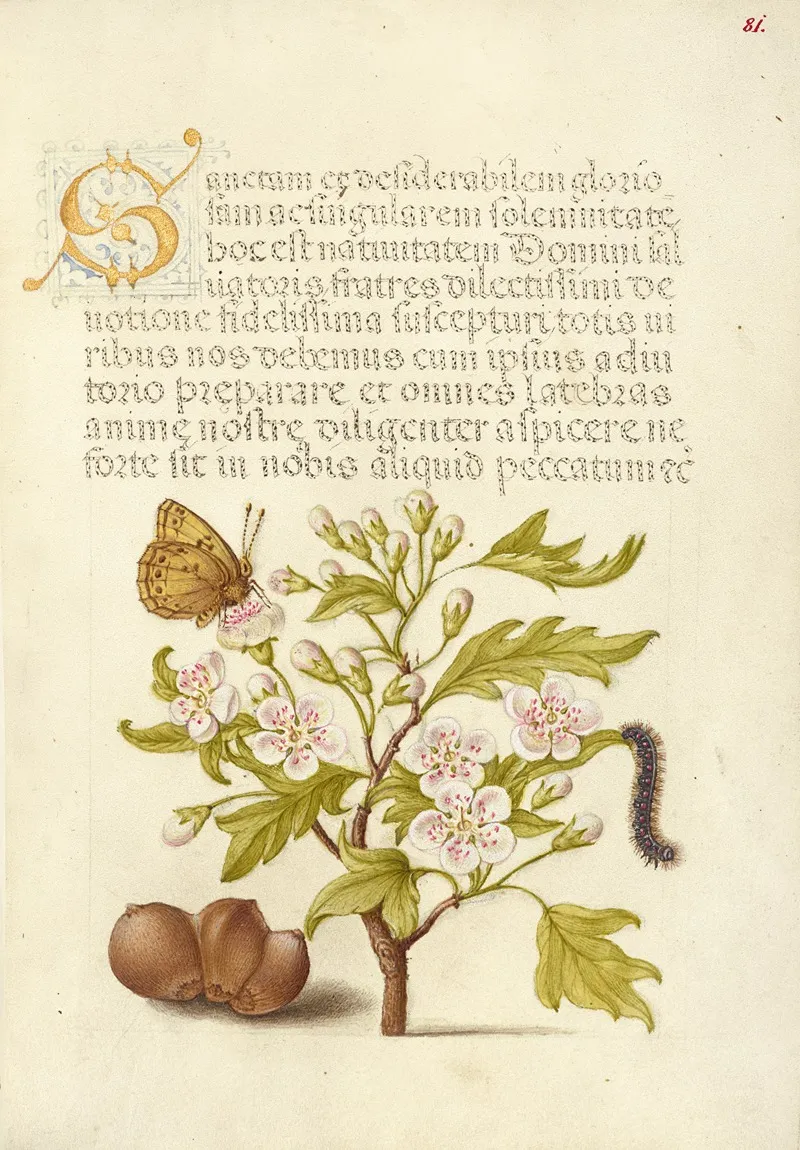 81.
Sanctam et desiderabilem glorio
sam ac singularem solemnitatē
hoc est natiuitatem Domini sal
uatoris fratres dilectissimi de
uotione fidelissima suscepturi totis ui
ribus nos debemus cum ipsius adiu
torio pręparare et omnes latebras
animę nostrę diligenter aspicere ne
forte sit in nobis aliquid peccatum ⁊c̄